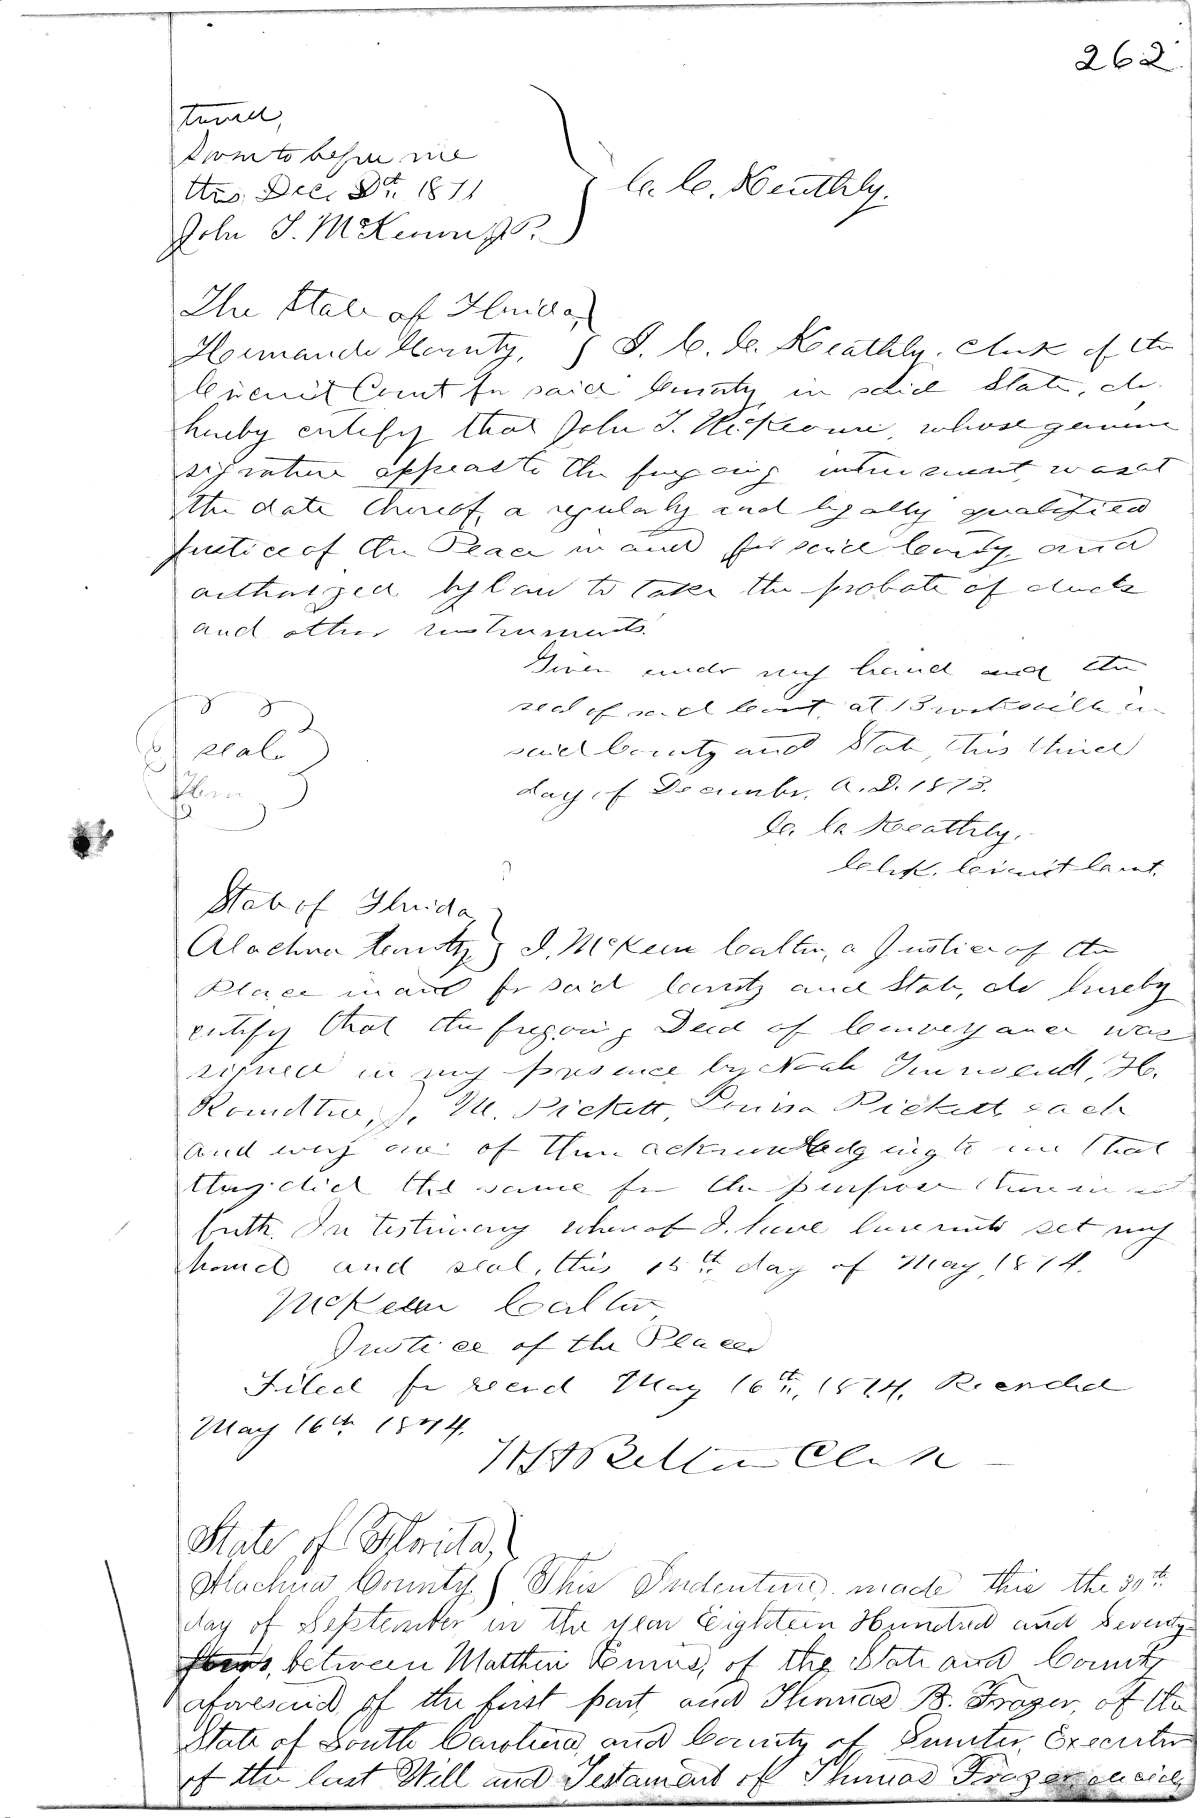 262
tined,
Sworn to before me
this Dec. 8th. 1871
John T. McKeown J.P.
C. C. Keathly.
The State of Florida,
Hernando County, I. C. C. Keathly. Clerk of the
Circuit Court for said County in said State, do
hereby certify that John T. McKeown, whose genuine
signature appears to the foregoing instrument, was at
the date thereof, a regularly and legally qualified
Justice of the Peace in and for said County and
authorized by law to take the probate of deeds
and other instruments.
Given under my hand and the
seal of said Court, at Brooksville in
said County and State, this third
seal.
day of December. A.D. 1873.
C. C. Keathly,
Clerk. Circuit Court.
State of Florida,
Alachua County, I, McKeen Calter, a Justice of the
Peace in and for said County and State, do hereby
certify that the foregoing Deed of Conveyance was
signed in my presence by Noah Townsend, H.
Roundtree, J. M. Pickett, Louisa Pickett, each
and every one of them acknowledging to me that
they did the same for the purpose therein set
forth. In testimony whereof I have hereunto set my
hand and seal, this 15th day of May, 1874.
McKeen Calter,
Justice of the Peace
Filed for record May 16th, 1874. Recorded
May 16th 1874.
Belton Clerk
State of Florida,
Alachua County, This Indenture made this the 30th
day of September in the year Eighteen Hundred and Seventy
four, between Matthew Ennis, of the State and County
aforesaid, of the first part, and Thomas B. Frazer, of the
State of South Carolina, and County of Sumter, Executor
of the last Will and Testament of Thomas Frazer